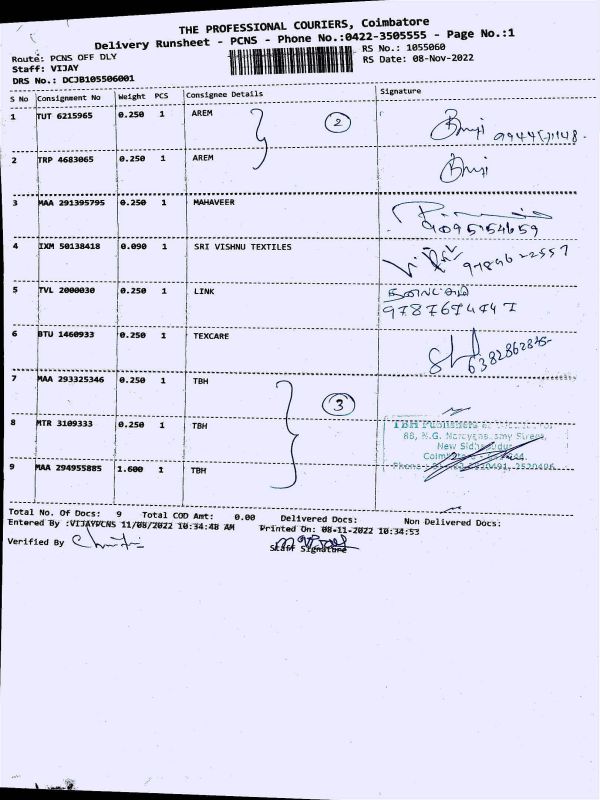 THE PROFESSIONAL COURIERS, Coimbatore
Delivery Runsheet - PCNS - Phone No.:0422-3505555 - Page No.:1
Route: PCNS OFF DLY
RS No.: 1055060
Staff: VIJAY
RS Date: 08-Nov-2022
DRS No.: DCJB105506001
S No Consignment No Weight PCS Consignee Details Signature
1 TUT 6215965 0.250 1 AREM 2
2 TRP 4683065 0.250 1 AREM
3 MAA 291395795 0.250 1 MAHAVEER
9095154659
4 IXM 50138418 0.090 1 SRI VISHNU TEXTILES
5 TVL 2000030 0.250 1 LINK
6 BTU 1460933 0.250 1 TEXCARE
6382862845
7 MAA 293325346 0.250 1 TBH 3
8 MTR 3109333 0.250 1 TBH
TBH Publishers
88, N.G. Narayanasamy Street,
New
9 MAA 294955885 1.600 1 TBH
Total No. Of Docs: 9 Total COD Amt: 0.00 Delivered Docs: Non Delivered Docs:
Entered By :VIJAYPCNS 11/08/2022 10:34:48 AM Printed On: 08-11-2022 10:34:53
Verified By
Staff Signature